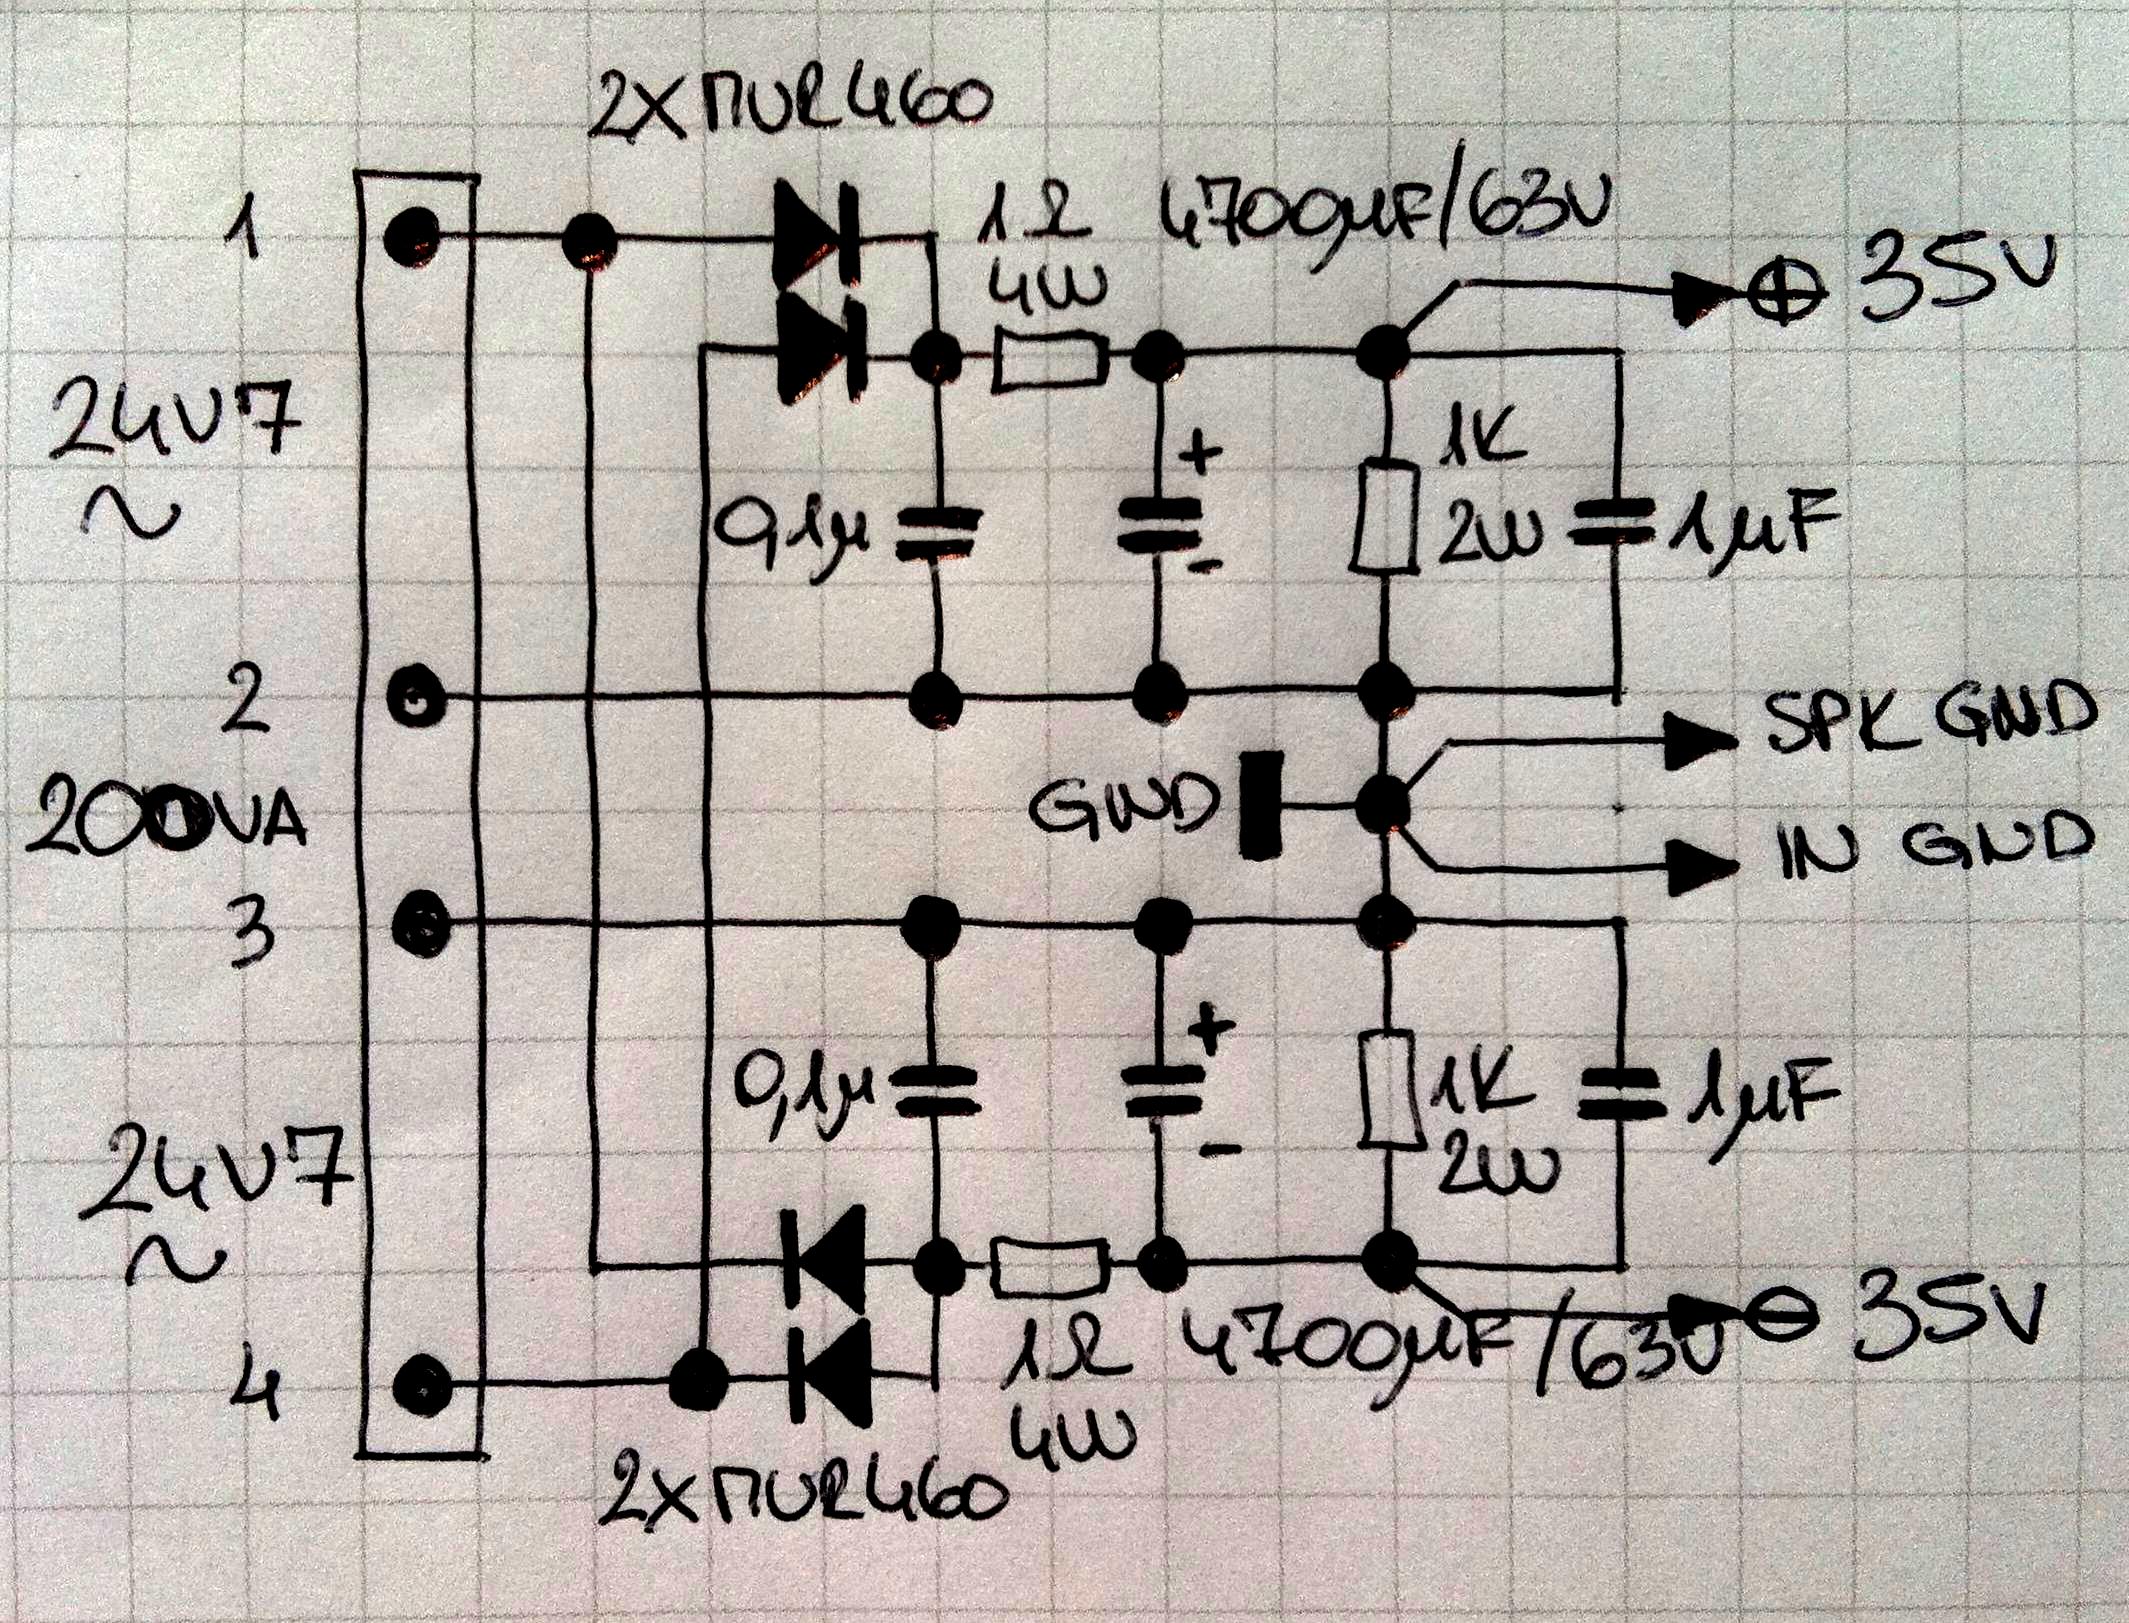 2XMUR460
1
1Ω
4W
4700µF/63V
⊕ 35V
24V7
~
0,1µ
+
-
1K
2W
1µF
2
SPK GND
200VA
GND
IN GND
3
+
0,1µ
-
1K
2W
1µF
24V7
~
⊖ 35V
4
1Ω
4W
4700µF/63V
2XMUR460